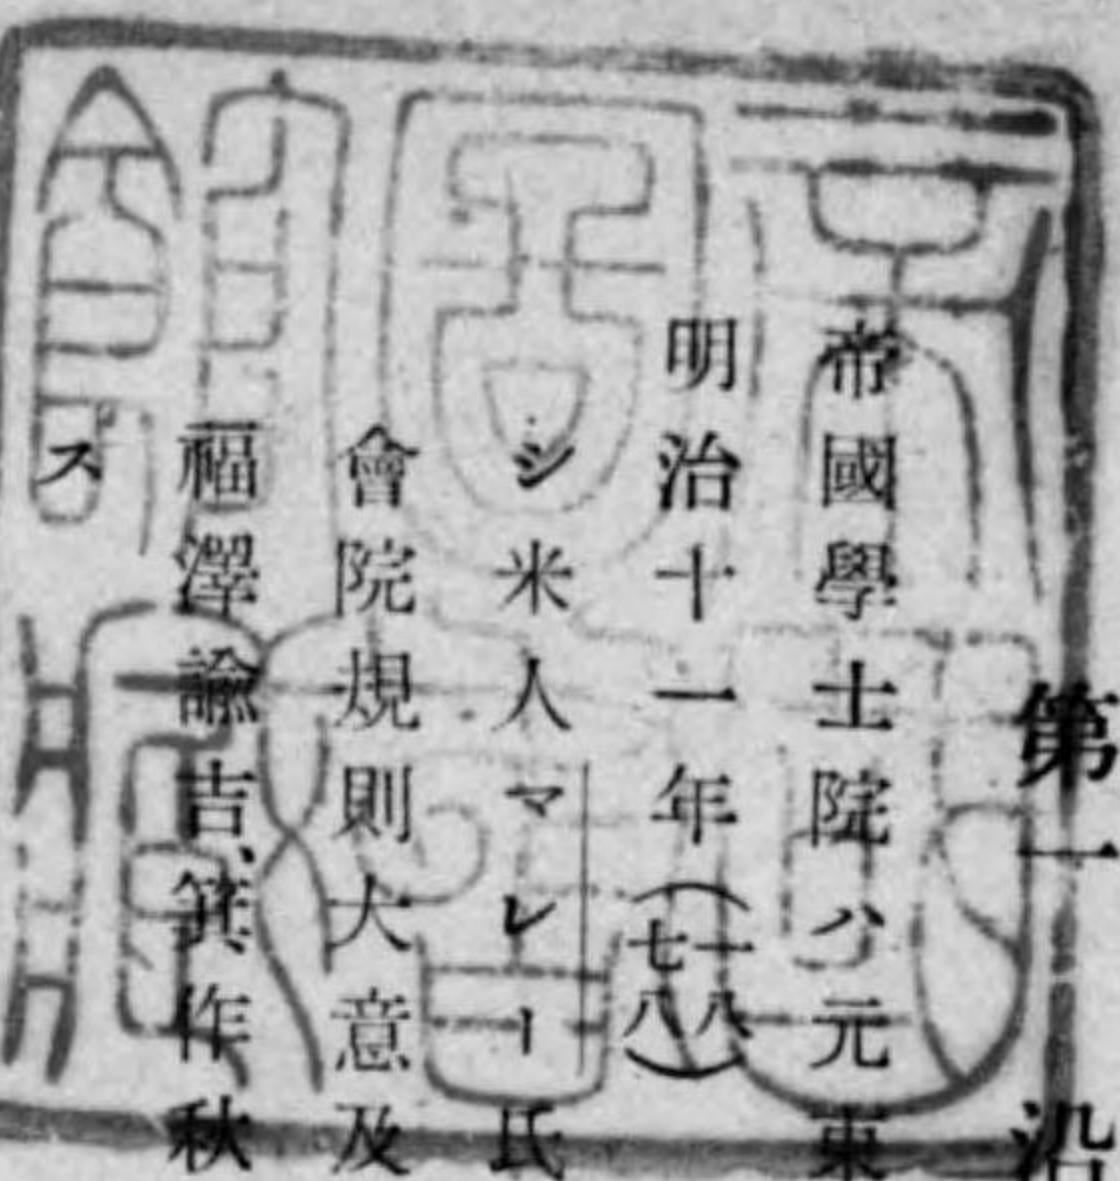 第一 沿
帝國學士院ハ元東
明治十一年(一八七八)
シ米人マレー氏
會院規則大意及
福澤諭吉、箕作秋
ス